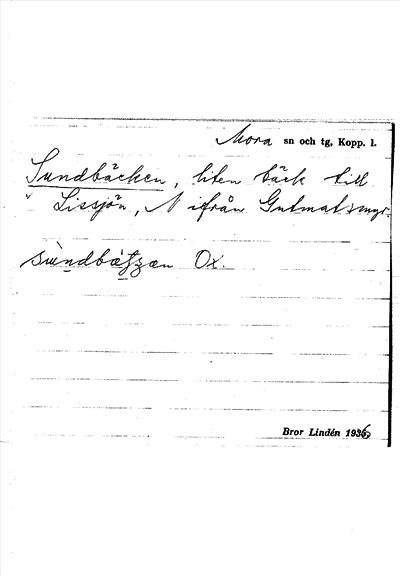 Mora sn och tg, Kopp. l.
Sundbäcken, liten bäck till
Lissjön, N ifrån Gutmatsmyr.
Ox.
Bror Lindén 1936